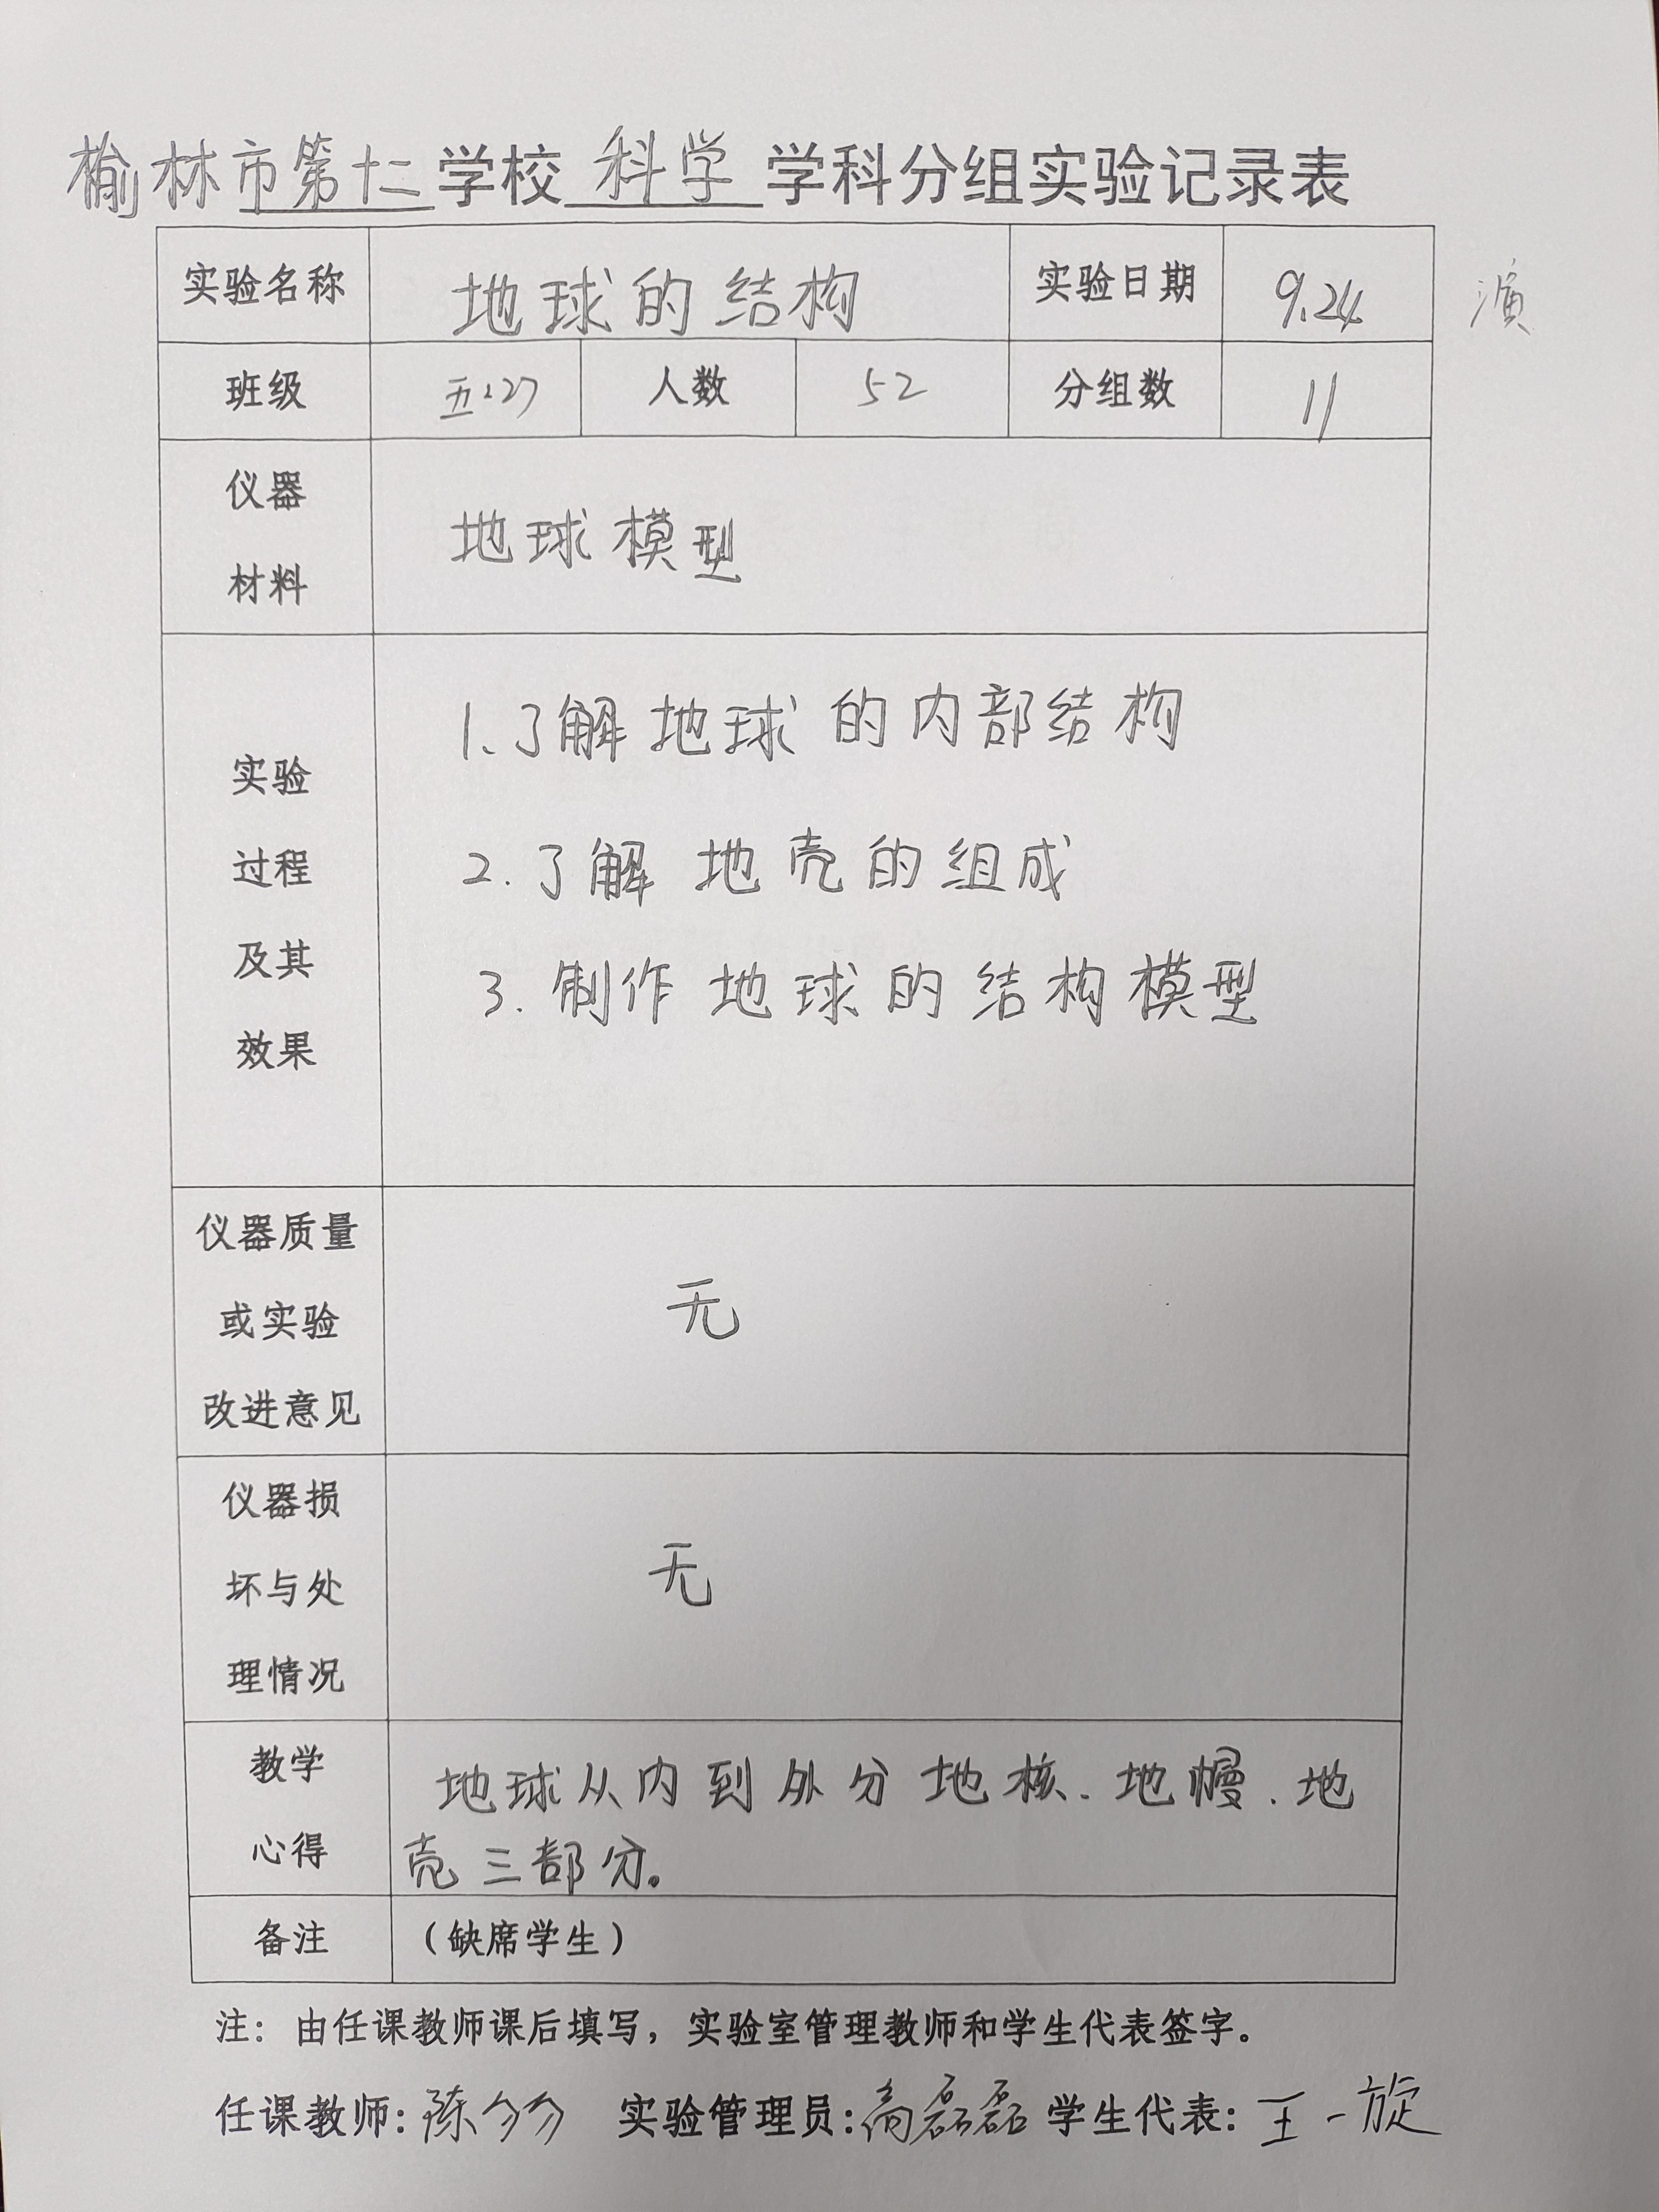 榆林市第十二学校 科学 学科分组实验记录表
实验名称 地球的结构 实验日期 9.24 演
班级 人数 52 分组数 11
仪器
材料
地球模型
实验
过程
及其
效果
1、了解地球的内部结构
2.了解地壳的组成
3.制作地球的结构模型
仪器质量
或实验
改进意见
无
仪器损
坏与处
理情况
无
教学
心得
地球从内到外分地核、地幔、地
壳三部分。
备注 （缺席学生）
注：由任课教师课后填写，实验室管理教师和学生代表签字。
任课教师: 陈 实验管理员: 高磊磊 学生代表: 王一旋